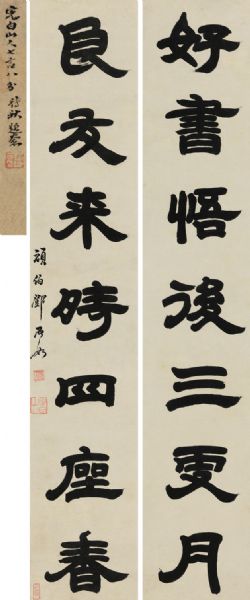 好書悟後三更月
良友来時四座春
頑伯鄧石如
完白山人七言八分